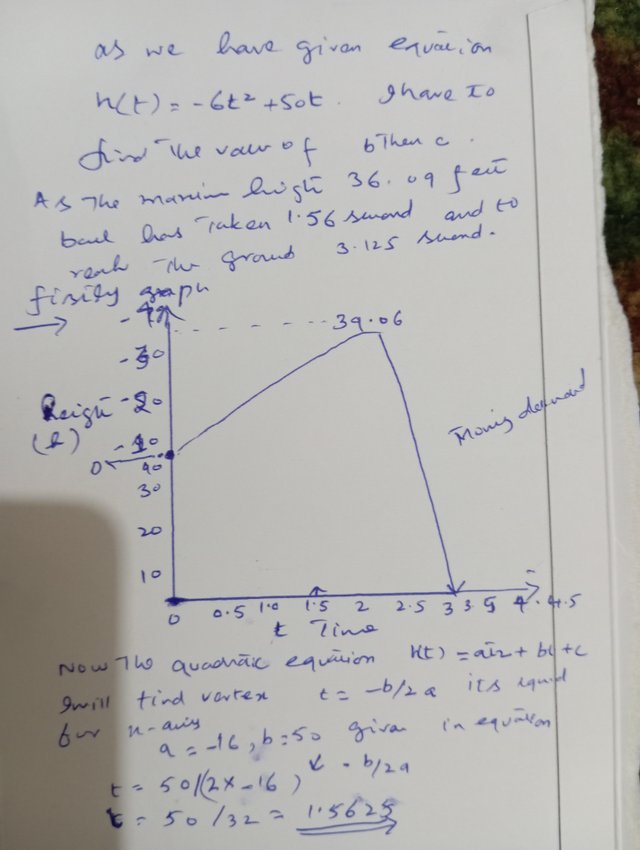 as we have given equation
h(t) = -6t² + 50t. I have to
find the valu of b then c.
As the maxim hight 36.09 feet
ball has taken 1.56 second and to
reach the ground 3.125 second.
firstly graph
39.06
- 30
- 20
Height
(h)
- 10
0
40
30
20
10
Moving downward
0 0.5 1.0 1.5 2 2.5 3 3.5 4 4.5
t Time
Now the quadratic equation h(t) = at2 + bt + c
I will find vertex t = -b/2a its squid
for x-axis
a = -16, b = 50 given in equation
t = 50/(2x-16) - b/2a
t = 50/32 = 1.5625